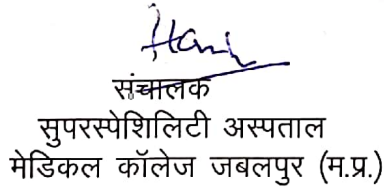 संचालक
सुपरस्पेशिलिटी अस्पताल
मेडिकल कॉलेज जबलपुर (म.प्र.)